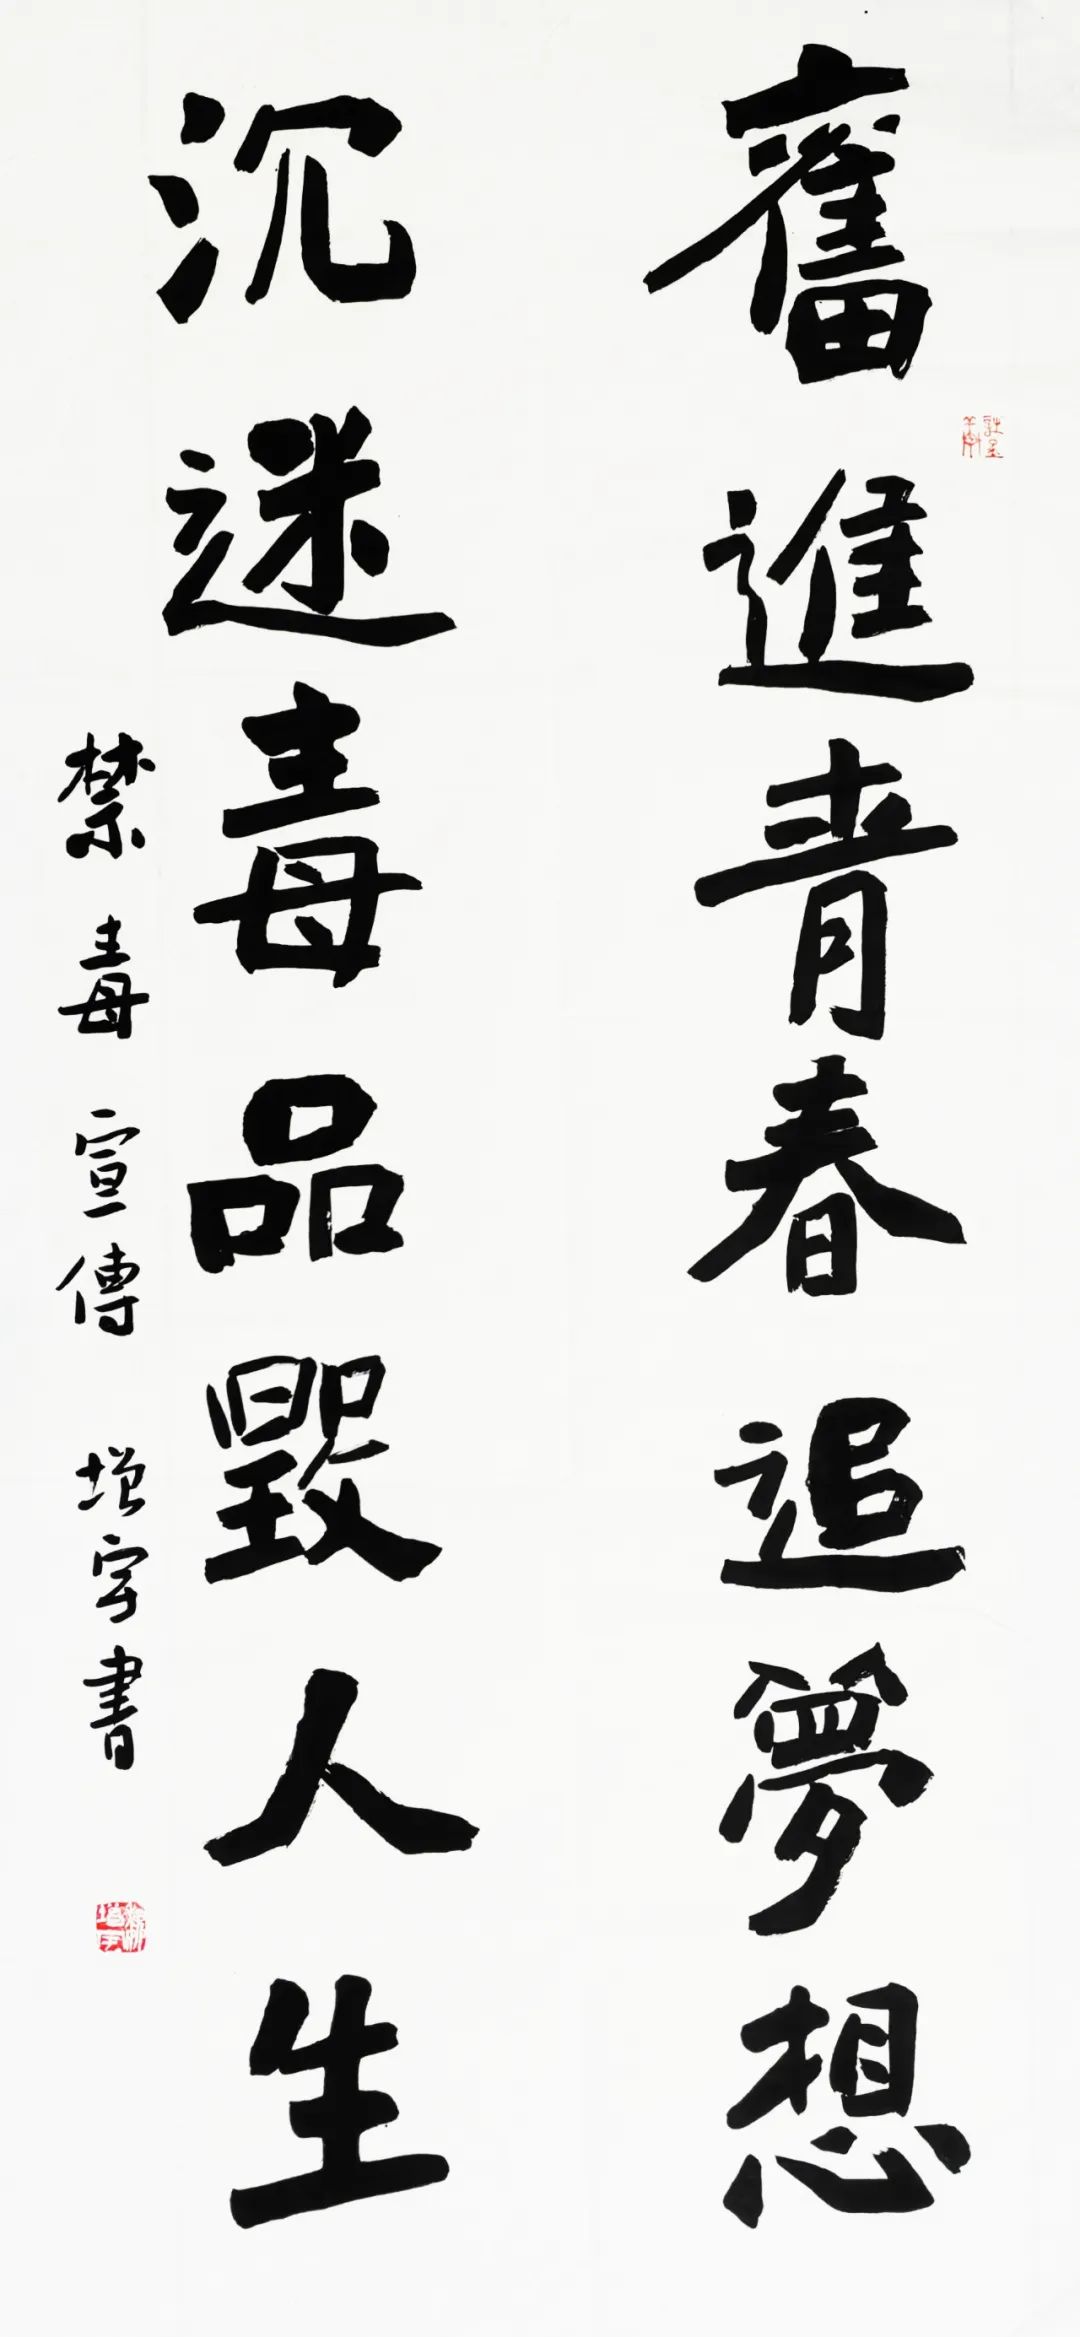 奮進青春追夢想
沉迷毒品毀人生
禁毒宣傳 增字書